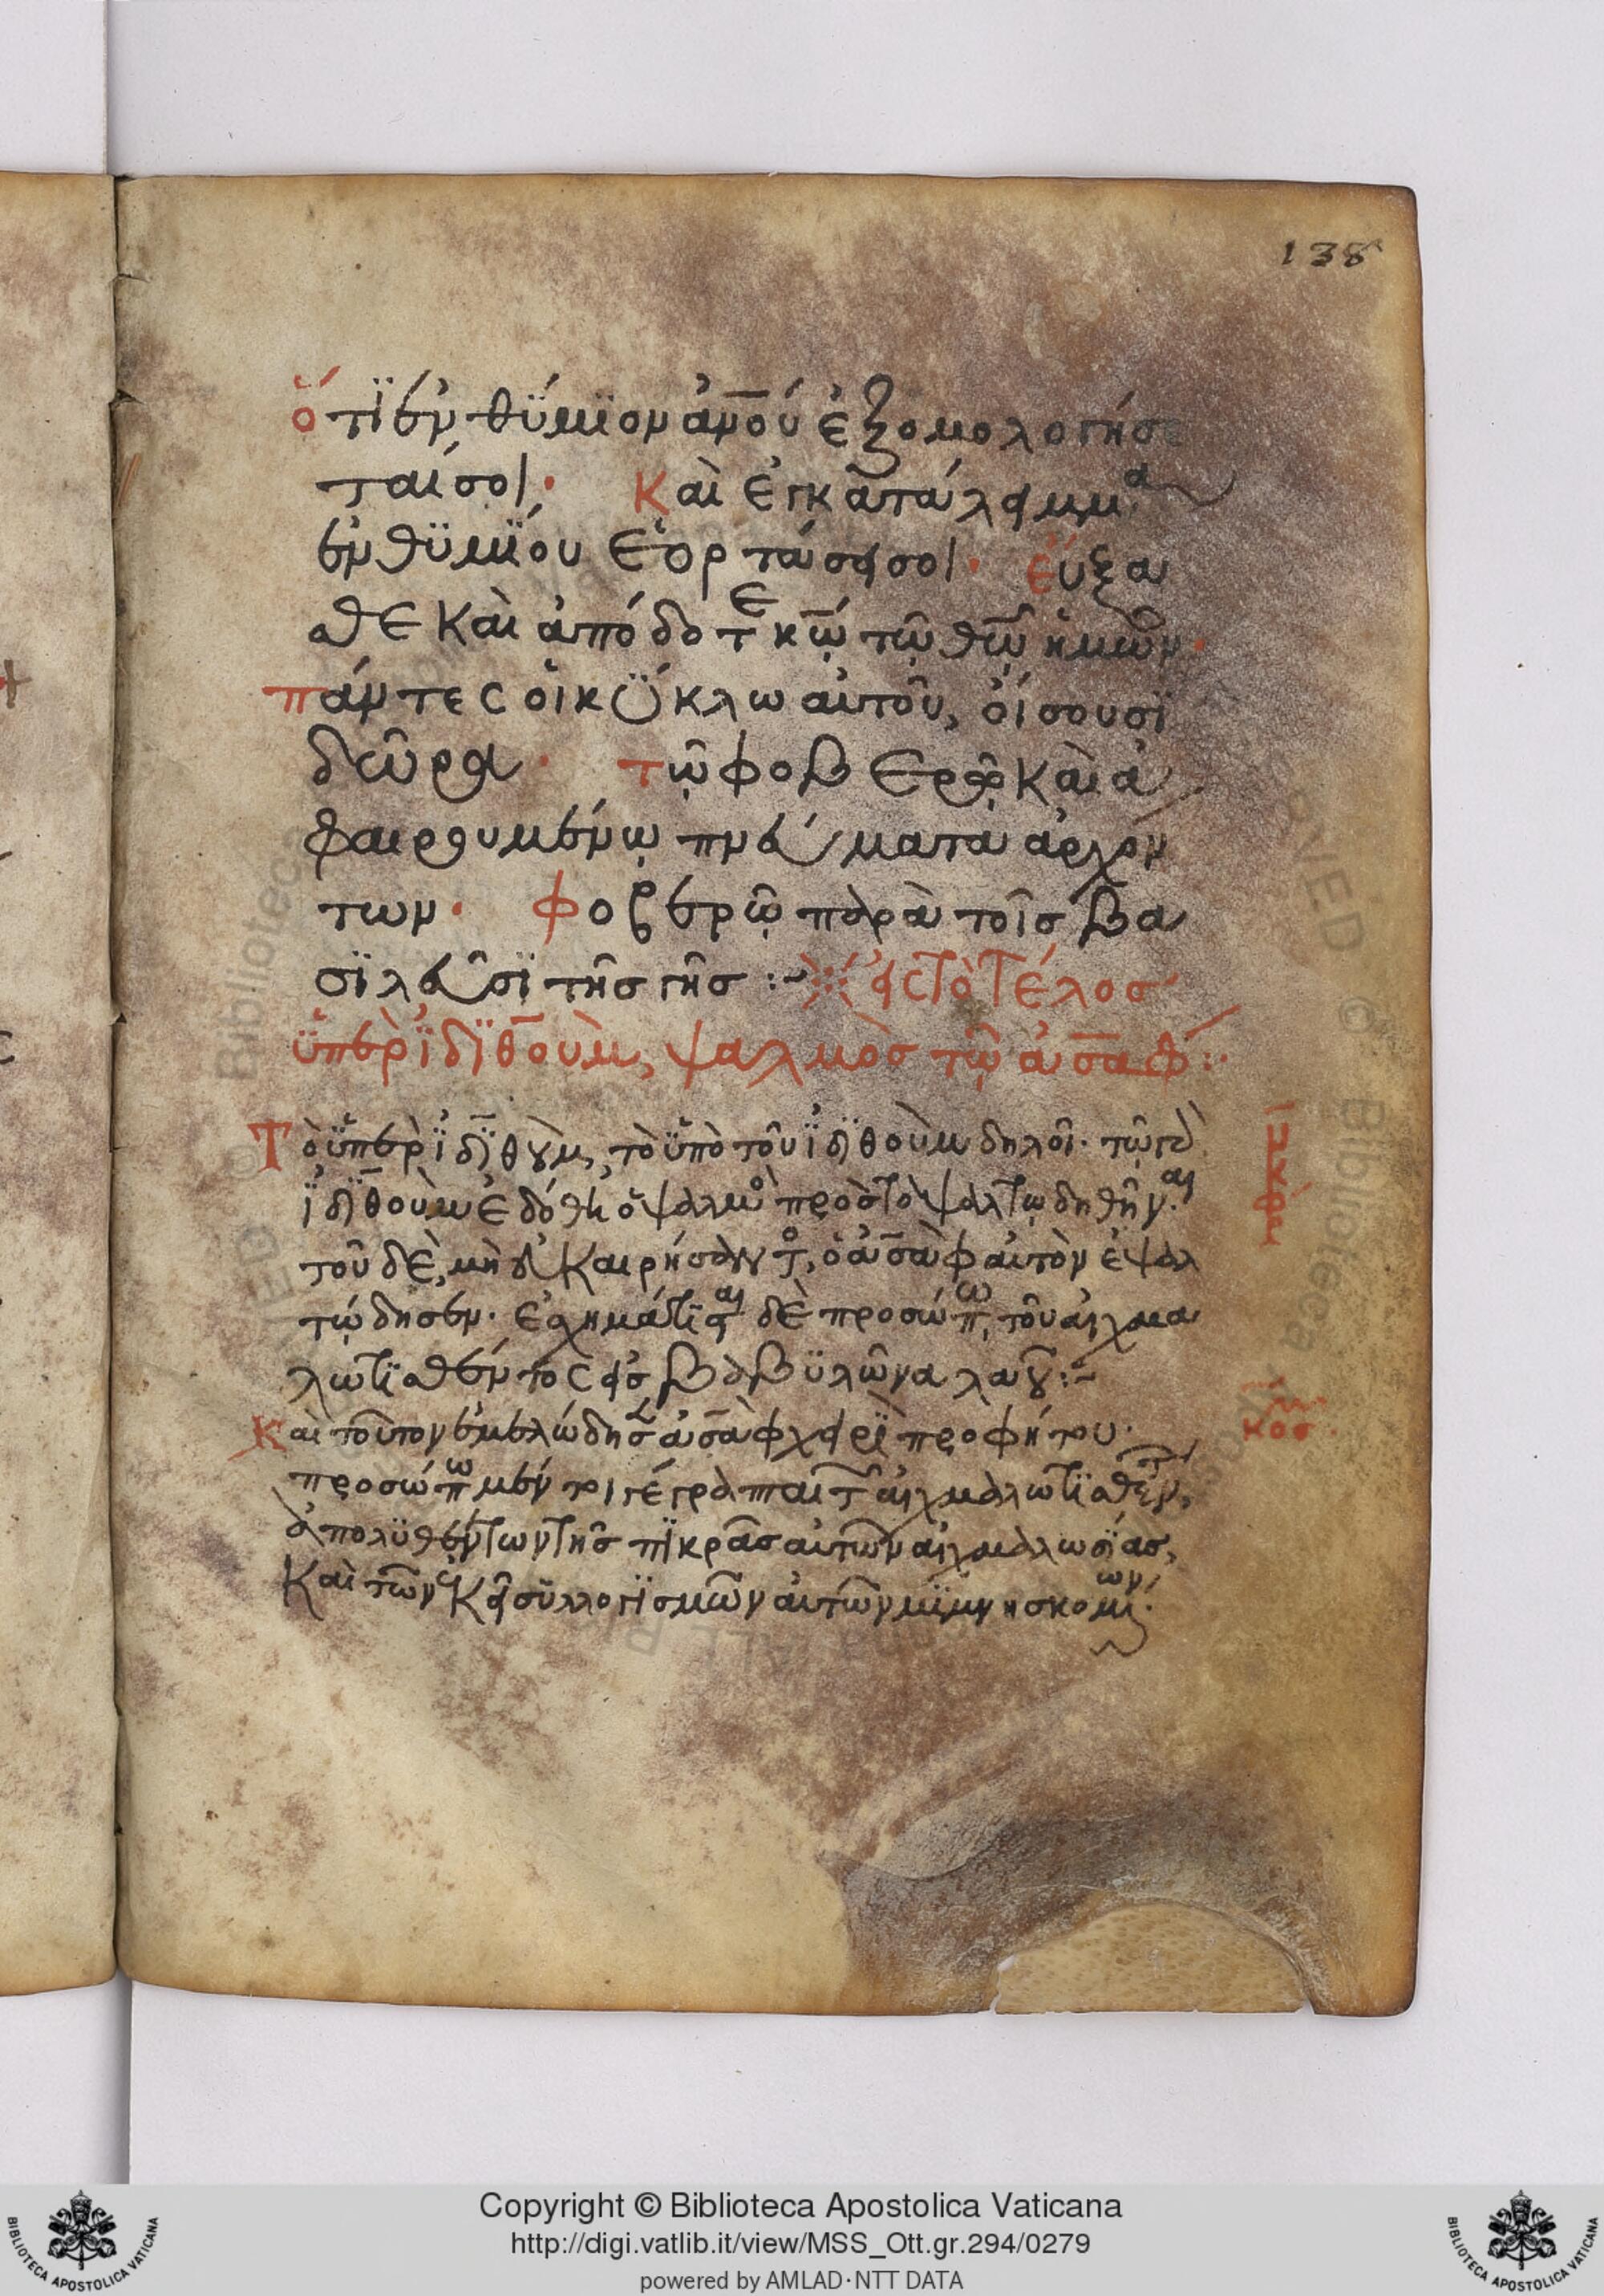 138
ὅτι ἐνθύμιον ἀνοῦ ἐξομολογήσε
ταί σοι· Καὶ ἐγκατάλειμμα
ἐνθυμίου ἑορτάσει σοι· εὔξα
σθε καὶ ἀπόδοτε κῶ τῶ θῶ ἡμῶν·
πάντες οἱ κύκλω αὐτοῦ, οἴσουσι
δῶρα· τῶ φοβερῶ καὶ ἀ
φαιρουμένω πνεύματα ἀρχόν
των· φοβερῶ παρὰ τοῖς βα
σιλεῦσι τῆς γῆς :~ εἰς τὸ τέλος
ὑπὲρ ἰδιθοὺμ, ψαλμὸς τῶ ἀσάφ :·
Τὸ ὑπὲρ ἰδιθοὺμ, τὸ ὑπὸ τοῦ ἰδιθοὺμ δηλοῖ· τῶ γὰρ
ἰδιθοὺμ ἐδόθη ὁ ψαλμὸς πρὸς τὸ ψαλτωδηθῆναι·
τοῦ δὲ, μὴ εὐκαιρήσαντος, ὁ ἀσὰφ αὐτὸν ἐψαλ
τώδησεν· ἐσχημάτισται δὲ προσώπω τοῦ αἰχμα
λωτισθέντος εἰς βαβυλῶνα λαοῦ :~
Καὶ τοῦτον ἐμελώδησεν ἀσὰφ χειρὶ προφήτου·
προσώπω μέντοι γέγραπται τῶν αἰχμαλωτισθέντων,
ἀπολυθέντων τῆς πικρᾶς αὐτῶν αἰχμαλωσίας,
Καὶ τῶν ἐκεῖ συλλογισμῶν αὐτῶν μιμνησκομένων·
Copyright © Biblioteca Apostolica Vaticana
http://digi.vatlib.it/view/MSS_Ott.gr.294/0279
powered by AMLAD·NTT DATA
BIBLIOTECA APOSTOLICA VATICANA
BIBLIOTECA APOSTOLICA VATICANA